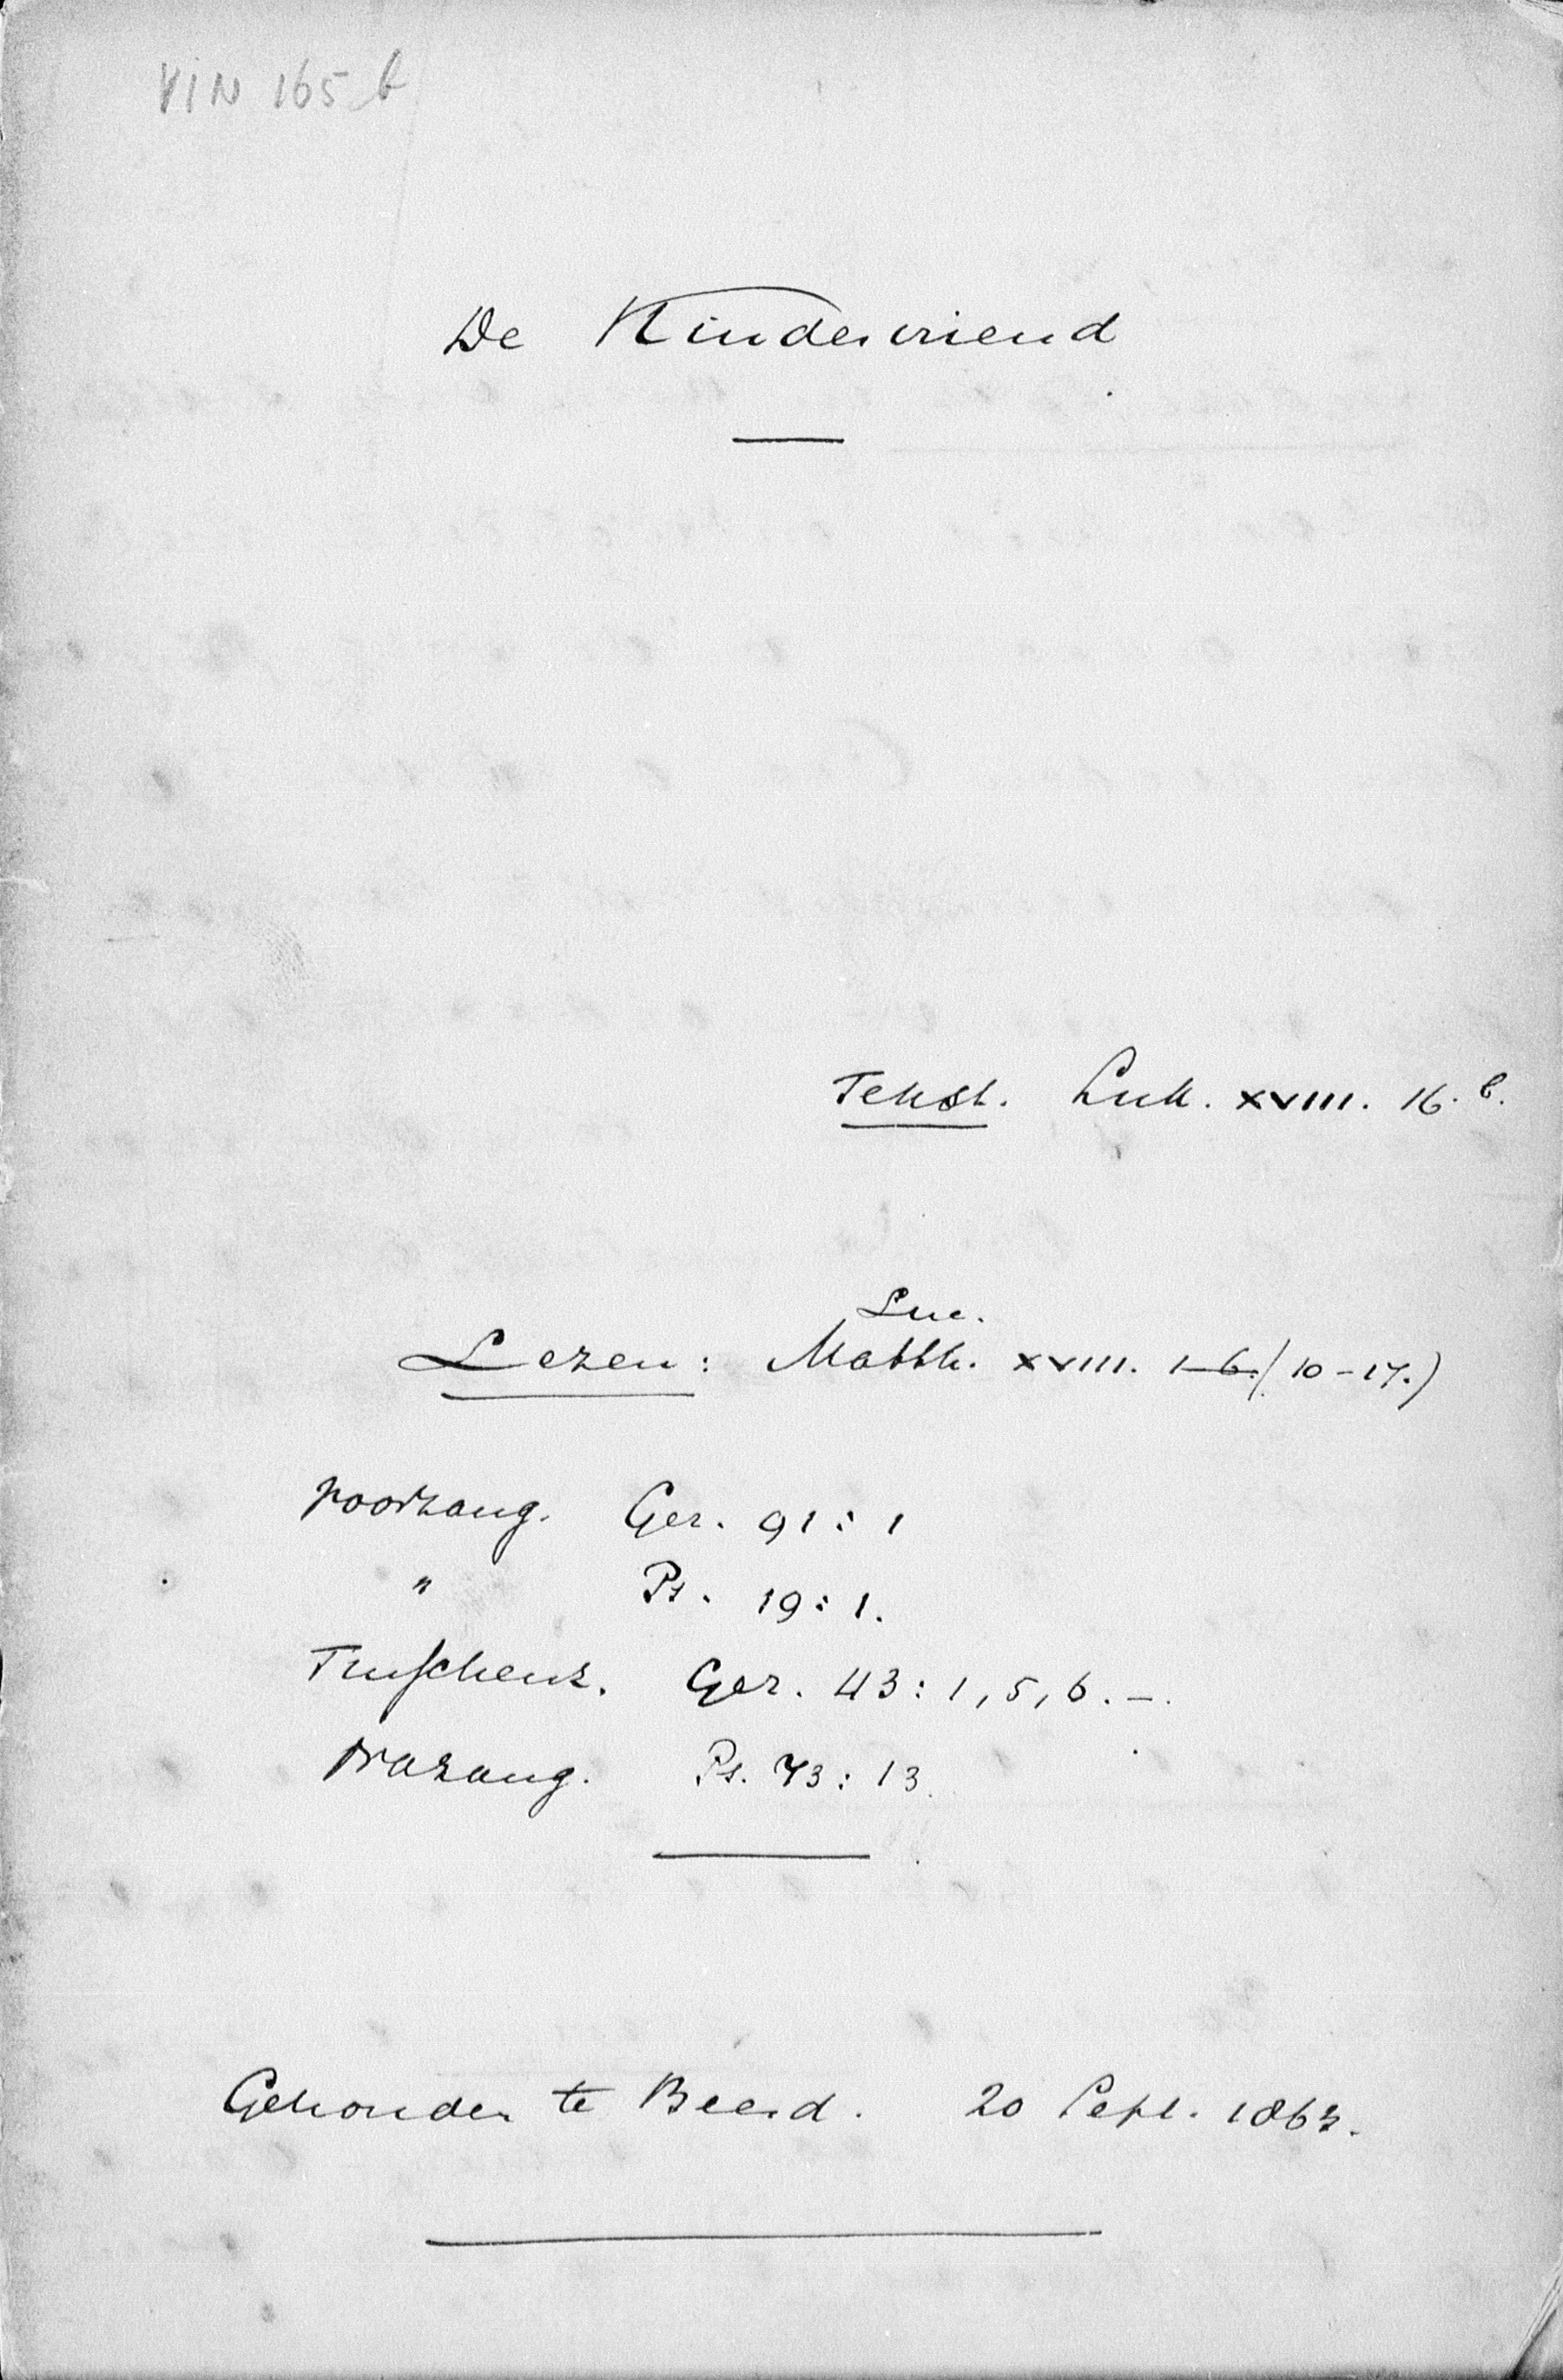 VIN 165 b
De Kindervriend
Tekst. Luk. XVIII. 16. b.
Luc.
Lezen: Matth. XVIII. 1-6. (10-17.)
Voorzang. Gez. 91:1
" Ps. 19:1.
Tusschenz. Gez. 43:1,5,6.-.
Nazang. Ps. 73:13.
Gehouden te Beesd. 20 Sept. 1863.